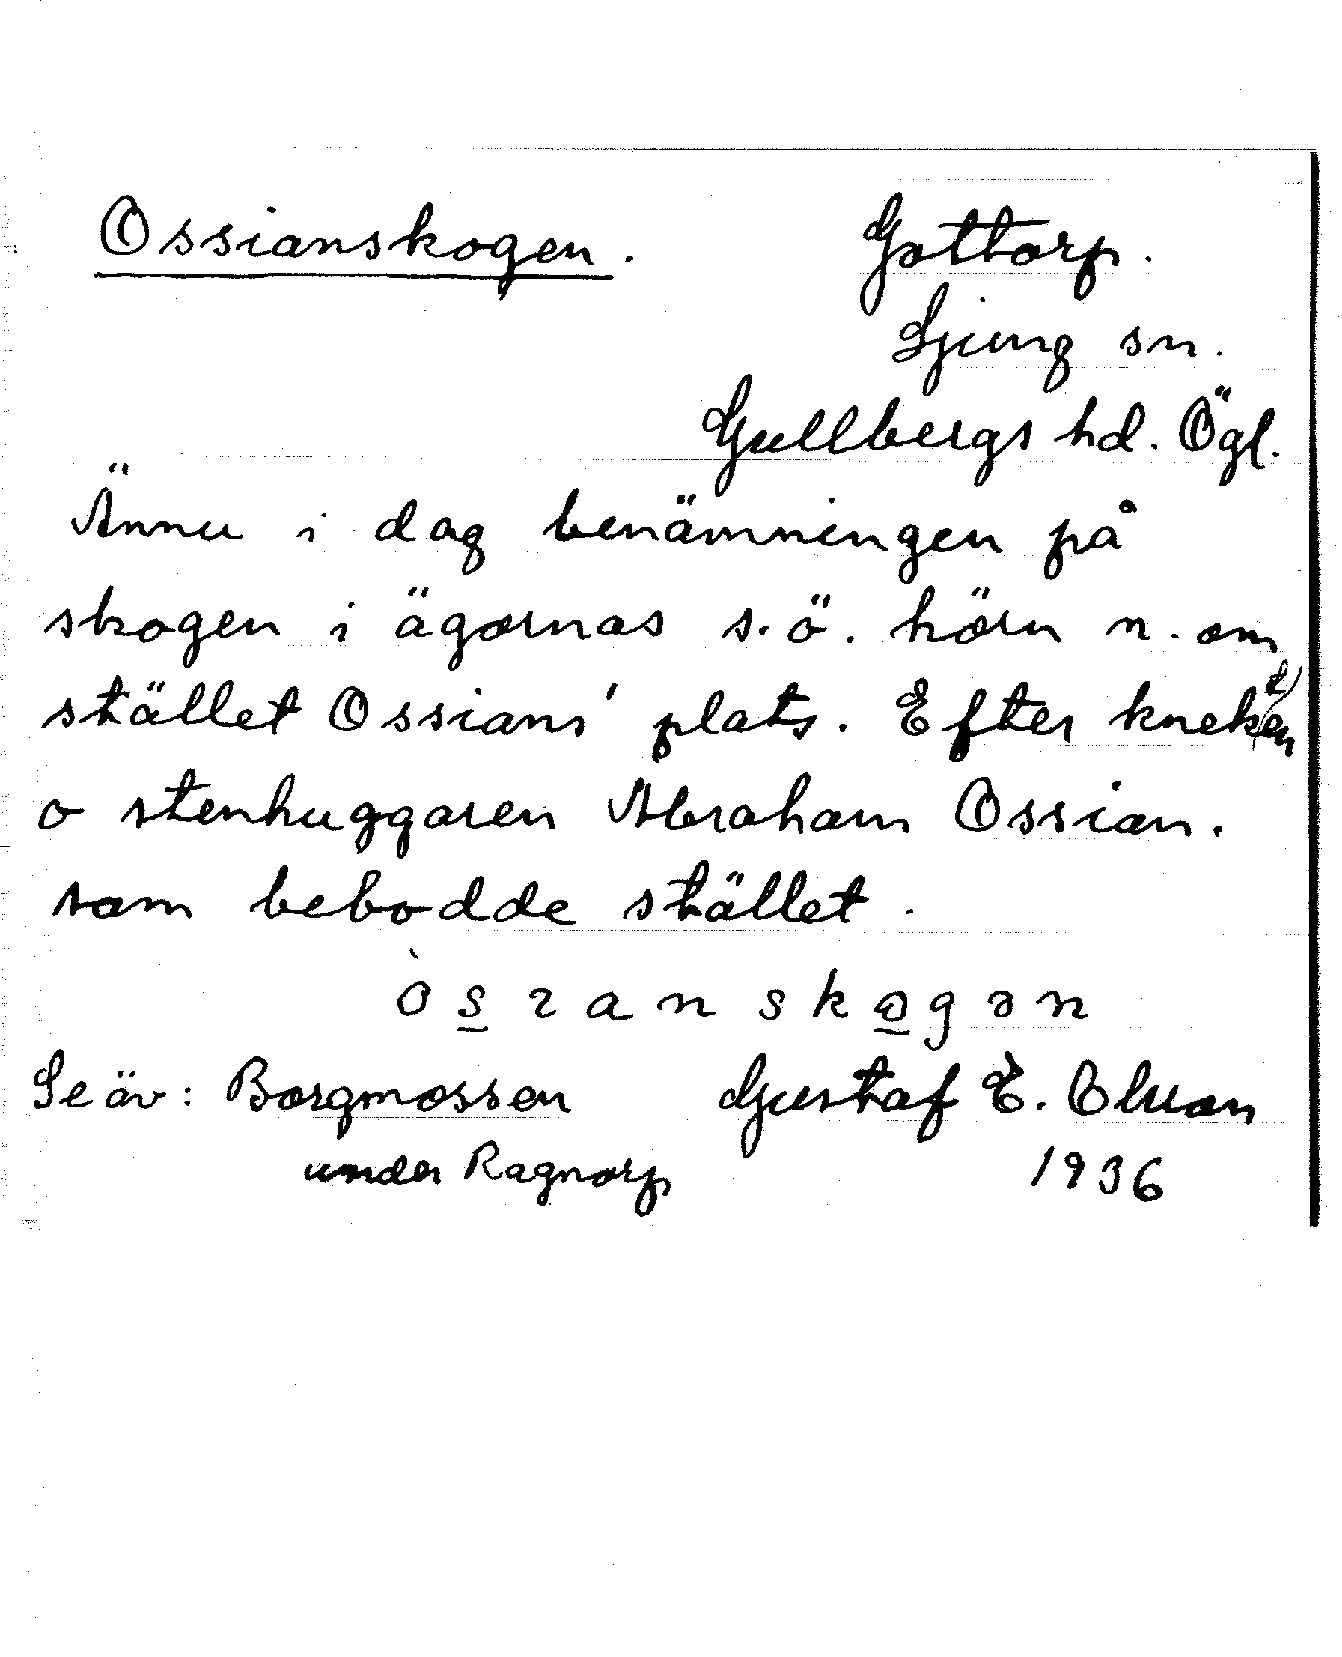 Ossianskogen. Gottorp.
Ljung sn.
Gullbergs hd. Ögl.
Ännu i dag benämningen på
skogen i ägornas s.ö. hörn n. om
stället Ossians' plats. Efter knekten
o stenhuggaren Abraham Ossian.
som bebodde stället.
òsıanskogən
Se äv: Borgmossen Gustaf E. Olson
under Ragnorp 1936